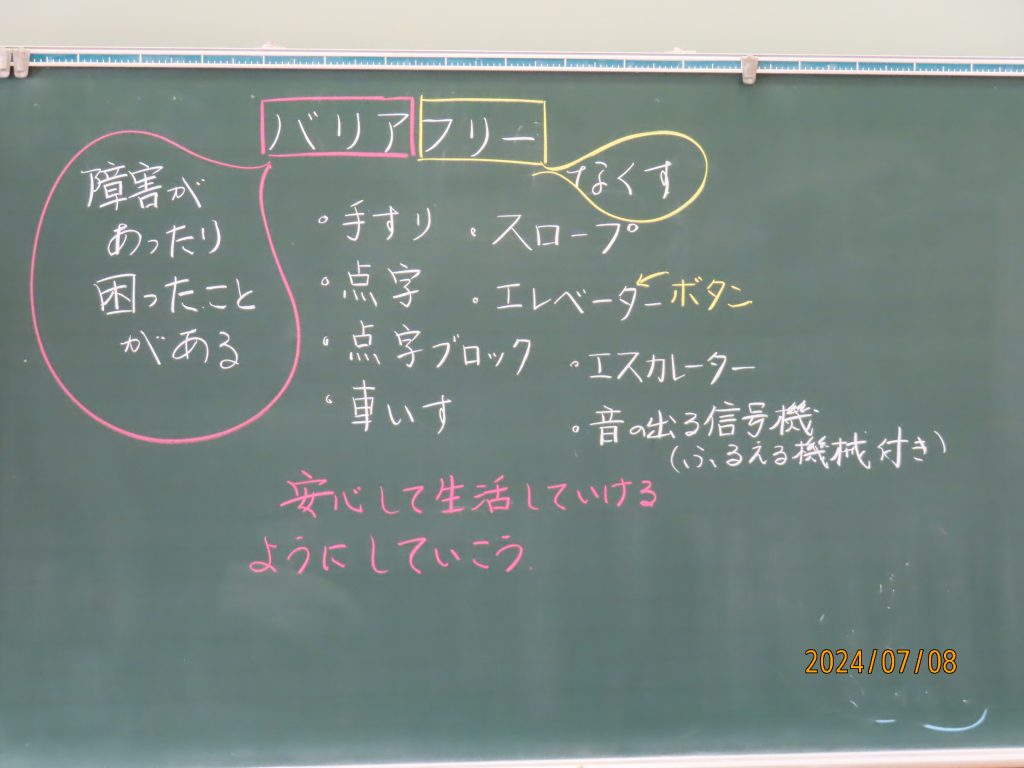 バリアフリー
なくす
障害が
あったり
困ったこと
がある
・手すり
・点字
・点字ブロック
・車いす
・スロープ
・エレベーター←ボタン
・エスカレーター
・音の出る信号機
(ふるえる機械付き)
安心して生活していける
ようにしていこう
2024/07/08